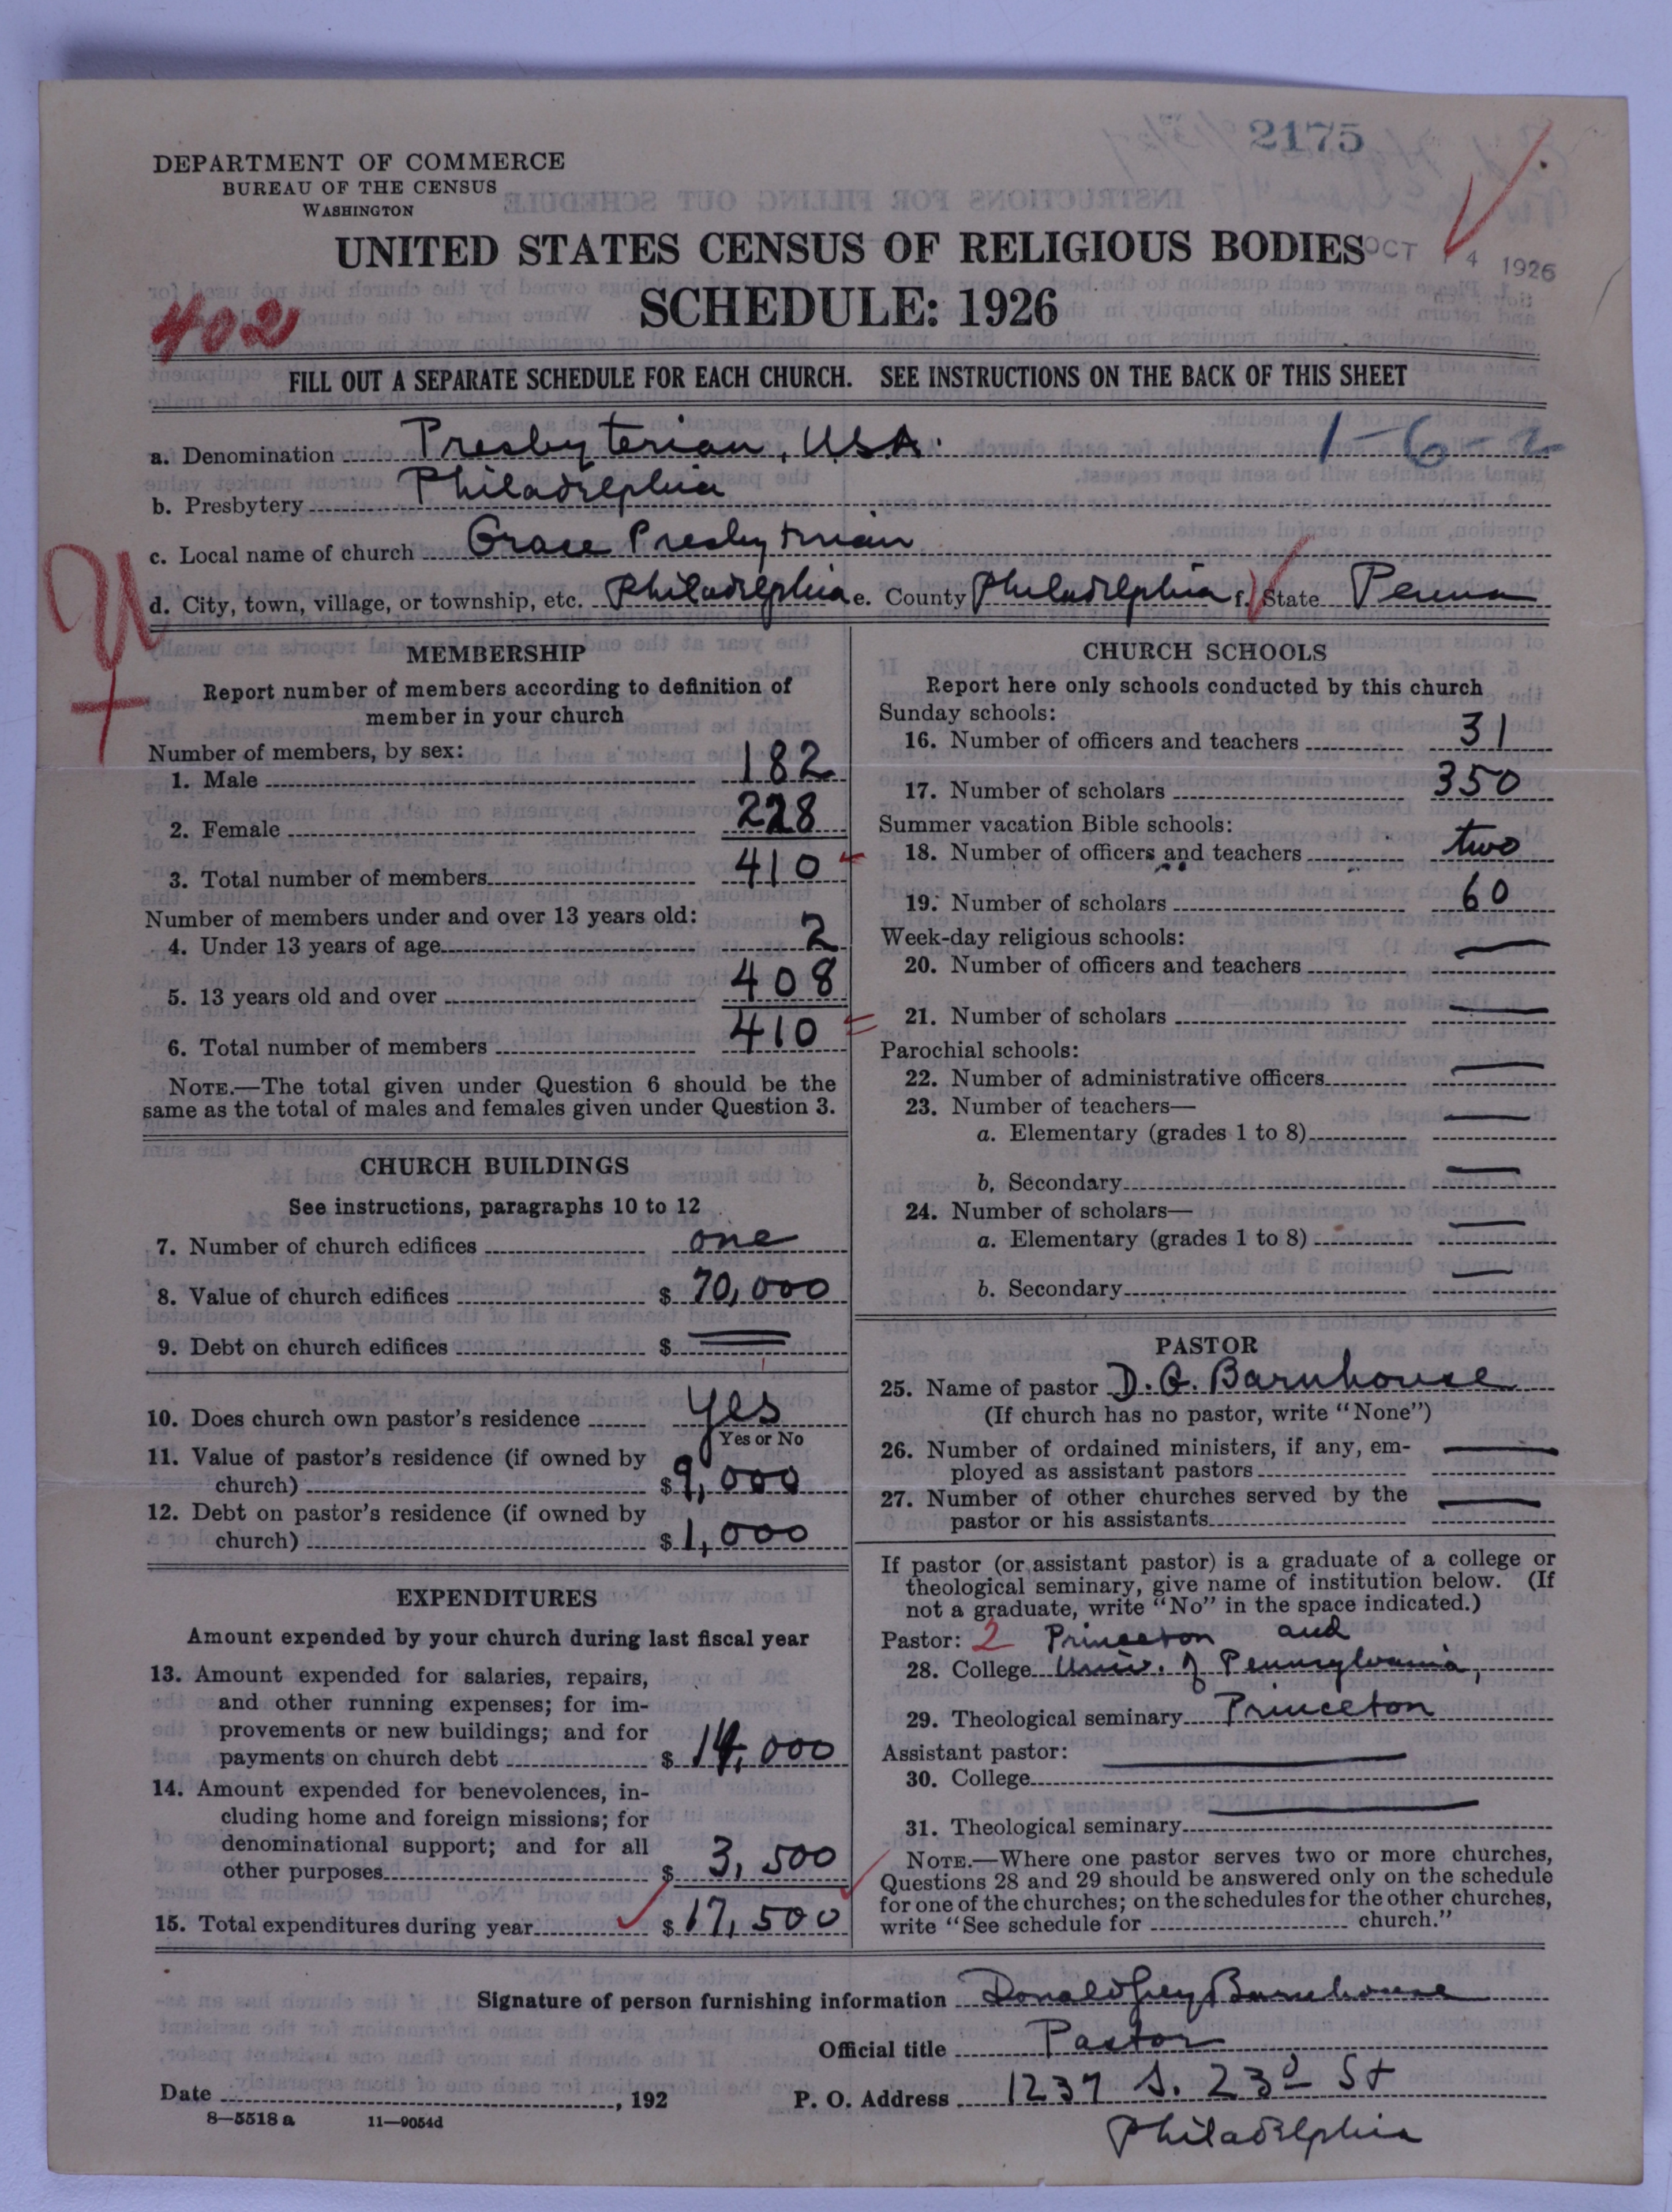 2175
DEPARTMENT OF COMMERCE
BUREAU OF THE CENSUS
WASHINGTON
UNITED STATES CENSUS OF RELIGIOUS BODIES
OCT 14 1926
SCHEDULE: 1926
402
FILL OUT A SEPARATE SCHEDULE FOR EACH CHURCH. SEE INSTRUCTIONS ON THE BACK OF THIS SHEET
a. Denomination Presbyterian, USA. 1-6-2
b. Presbytery Philadelphia
c. Local name of church Grace Presbyterian
d. City, town, village, or township, etc. Philadelphia e. County Philadelphia f. State Penna
MEMBERSHIP
Report number of members according to definition of
member in your church
Number of members, by sex:
1. Male 182
2. Female 228
3. Total number of members 410
Number of members under and over 13 years old:
4. Under 13 years of age 2
5. 13 years old and over 408
6. Total number of members 410
NOTE.—The total given under Question 6 should be the
same as the total of males and females given under Question 3.
CHURCH BUILDINGS
See instructions, paragraphs 10 to 12
7. Number of church edifices one
8. Value of church edifices $ 70,000
9. Debt on church edifices $
10. Does church own pastor's residence yes
Yes or No
11. Value of pastor's residence (if owned by
church) $ 9,000
12. Debt on pastor's residence (if owned by
church) $ 1,000
EXPENDITURES
Amount expended by your church during last fiscal year
13. Amount expended for salaries, repairs,
and other running expenses; for im-
provements or new buildings; and for
payments on church debt $ 14,000
14. Amount expended for benevolences, in-
cluding home and foreign missions; for
denominational support; and for all
other purposes $ 3,500
15. Total expenditures during year $ 17,500
CHURCH SCHOOLS
Report here only schools conducted by this church
Sunday schools:
16. Number of officers and teachers 31
17. Number of scholars 350
Summer vacation Bible schools:
18. Number of officers and teachers two
19. Number of scholars 60
Week-day religious schools:
20. Number of officers and teachers —
21. Number of scholars —
Parochial schools:
22. Number of administrative officers —
23. Number of teachers—
a. Elementary (grades 1 to 8) —
b. Secondary —
24. Number of scholars—
a. Elementary (grades 1 to 8) —
b. Secondary —
PASTOR
25. Name of pastor D. G. Barnhouse
(If church has no pastor, write "None")
26. Number of ordained ministers, if any, em-
ployed as assistant pastors —
27. Number of other churches served by the
pastor or his assistants —
If pastor (or assistant pastor) is a graduate of a college or
theological seminary, give name of institution below. (If
not a graduate, write "No" in the space indicated.)
Pastor: 2 Princeton and
28. College Univ. of Pennsylvania,
29. Theological seminary Princeton
Assistant pastor: —
30. College
31. Theological seminary —
NOTE.—Where one pastor serves two or more churches,
Questions 28 and 29 should be answered only on the schedule
for one of the churches; on the schedules for the other churches,
write "See schedule for church."
Signature of person furnishing information Donald Grey Barnhouse
Official title Pastor
Date , 192 P. O. Address 1237 S. 23d St
8—5518 a 11—9054d
Philadelphia